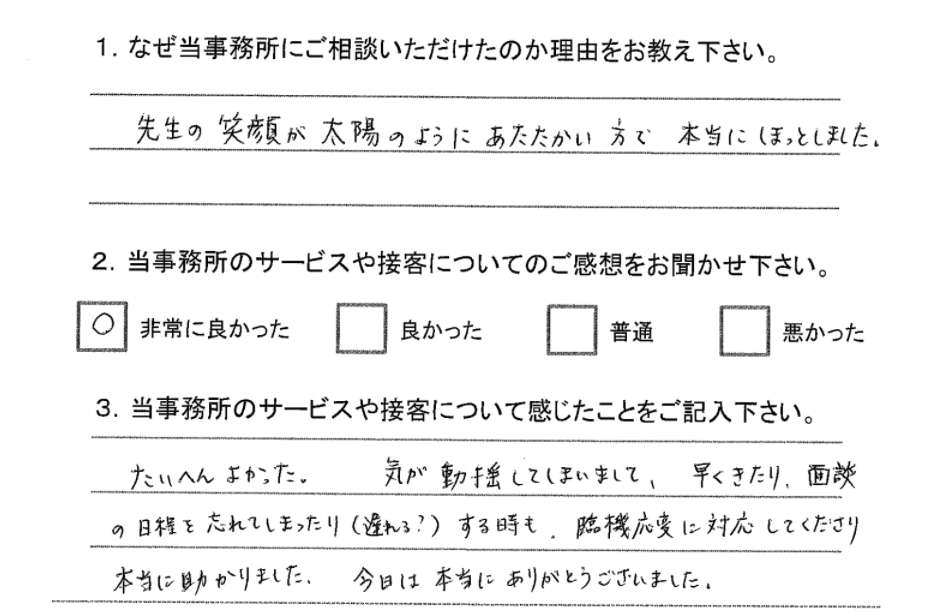 1. なぜ当事務所にご相談いただけたのか理由をお教え下さい。
先生の笑顔が太陽のようにあたたかい方で 本当にほっとしました。
2. 当事務所のサービスや接客についてのご感想をお聞かせ下さい。
○ 非常に良かった 良かった 普通 悪かった
3. 当事務所のサービスや接客について感じたことをご記入下さい。
たいへんよかった。 気が動揺してしまいまして、早くきたり、面談
の日程を忘れてしまったり(遅れる?)する時も、臨機応変に対応してくださり
本当に助かりました。 今日は本当にありがとうございました。